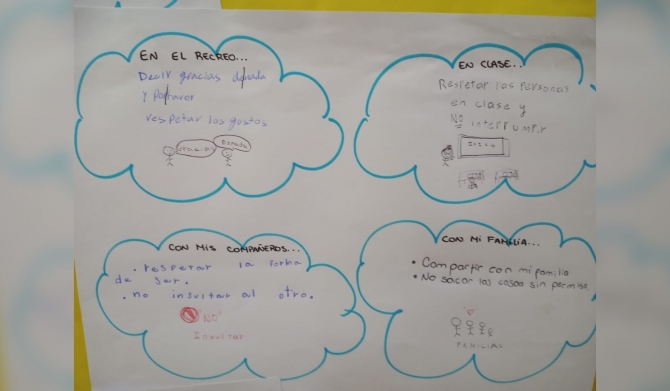 EN EL RECREO...
Decir gracias de nada
y Porfavor
respetar los gostos
gracias
De nada
EN CLASE...
Respetar las personas
en clase y
No interrumpir
CON MIS COMPAÑEROS...
. respetar la forma
de ser.
. no insultar al otro.
"NO"
Insultar
CON MI FAMILIA...
• Compartir con mi familia
• No sacar las cosas sin permiso
FAMILIAS